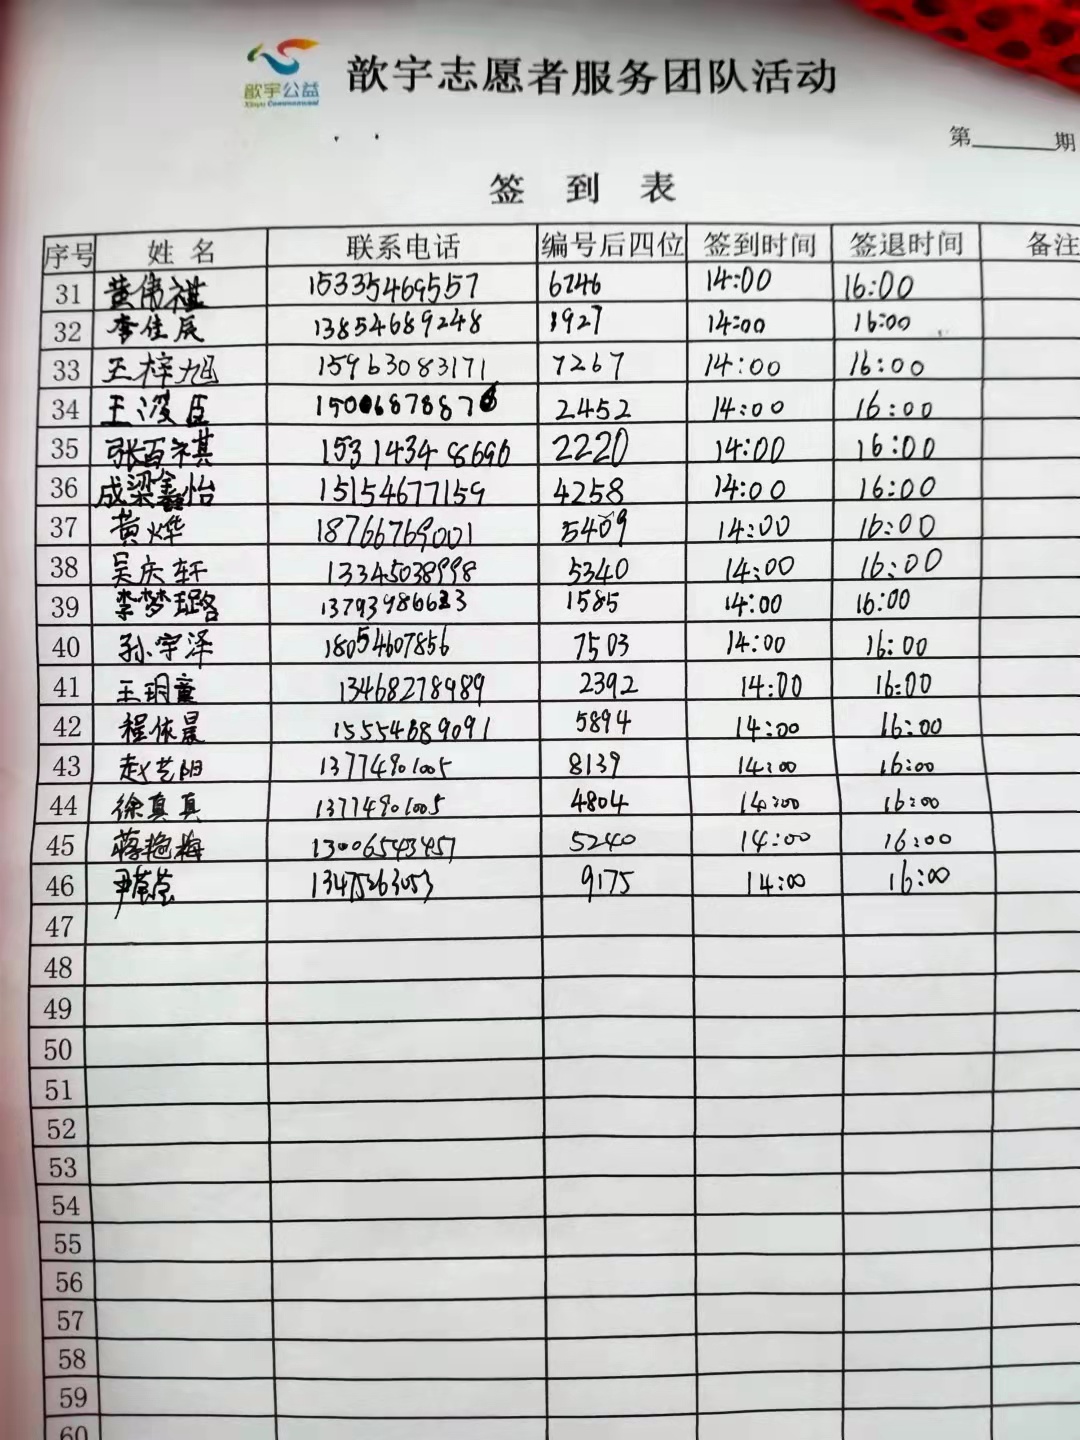 歆宇公益
Xinyu Commonweal
歆宇志愿者服务团队活动
第______期
签 到 表
序号 姓 名 联系电话 编号后四位 签到时间 签退时间 备注
31 黄伟祺 15335469557 6746 14:00 16:00
32 李佳辰 13854689248 1927 14:00 16:00
33 王梓旭 15963083171 7267 14:00 16:00
34 王浚臣 15006878876 2452 14:00 16:00
35 张百祺 15314348696 2220 14:00 16:00
36 成梁鑫怡 15154677159 4258 14:00 16:00
37 黄烨 18766769001 5409 14:00 16:00
38 吴庆轩 13345038998 5340 14:00 16:00
39 李梦璐 13793986623 1585 14:00 16:00
40 孙宇泽 18054607856 7503 14:00 16:00
41 王玥童 13468278989 2392 14:00 16:00
42 程依晨 15554689091 5894 14:00 16:00
43 赵艺阳 13774901005 8139 14:00 16:00
44 徐真真 13774901005 4804 14:00 16:00
45 蒋艳梅 13006543457 5240 14:00 16:00
46 尹 13475263053 9175 14:00 16:00
47
48
49
50
51
52
53
54
55
56
57
58
59
60